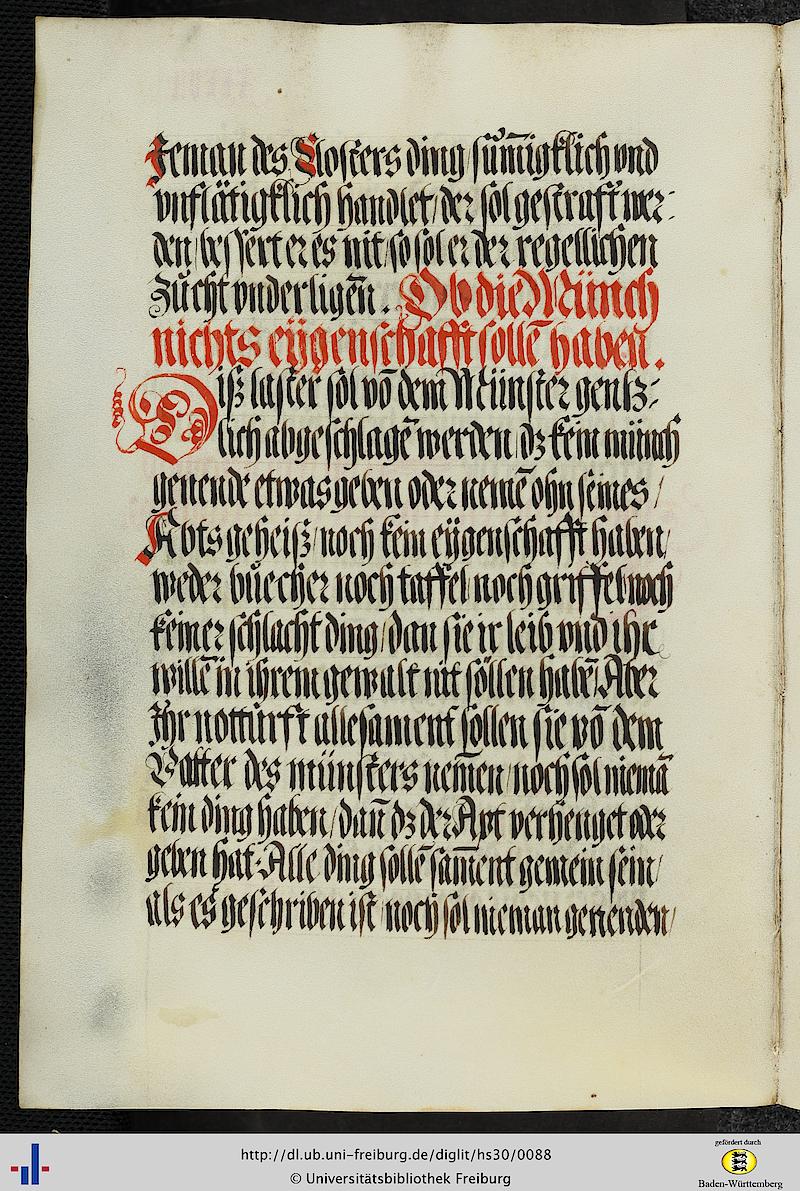 Jeman des Closters ding / sūmigklich vnd
vnflätigklich handlet / der sol gestrafft wer⸗
den / bessert er es nit / so sol er der regellichen
Zůcht vnderligen̄. Ob die Münch
nichts eÿgenschafft sollē haben.
Diß laster sol vō dem Münster gentz⸗
lich abgeschlagē werden / dz kein münch
genende etwas geben oder nemē ohn seines /
Abts geheiß / noch kein eÿgenschafft haben /
weder bůecher noch taffel noch griffel noch
keiner schlacht ding / dan sie ir leib vnd ihr
willē in ihrem gewalt nit söllen habē / Aber
Ihr notturft allesament sollen sie vō dem
Vatter des münsters nem̄en / noch sol niemā
kein ding haben / dan̄ dz der Apt verhenget oder
geben hat. Alle ding sollē sam̄ent gemein sein /
als es geschriben ist / noch sol nieman genenden /
http://dl.ub.uni-freiburg.de/diglit/hs30/0088
© Universitätsbibliothek Freiburg
gefördert durch
Baden-Württemberg